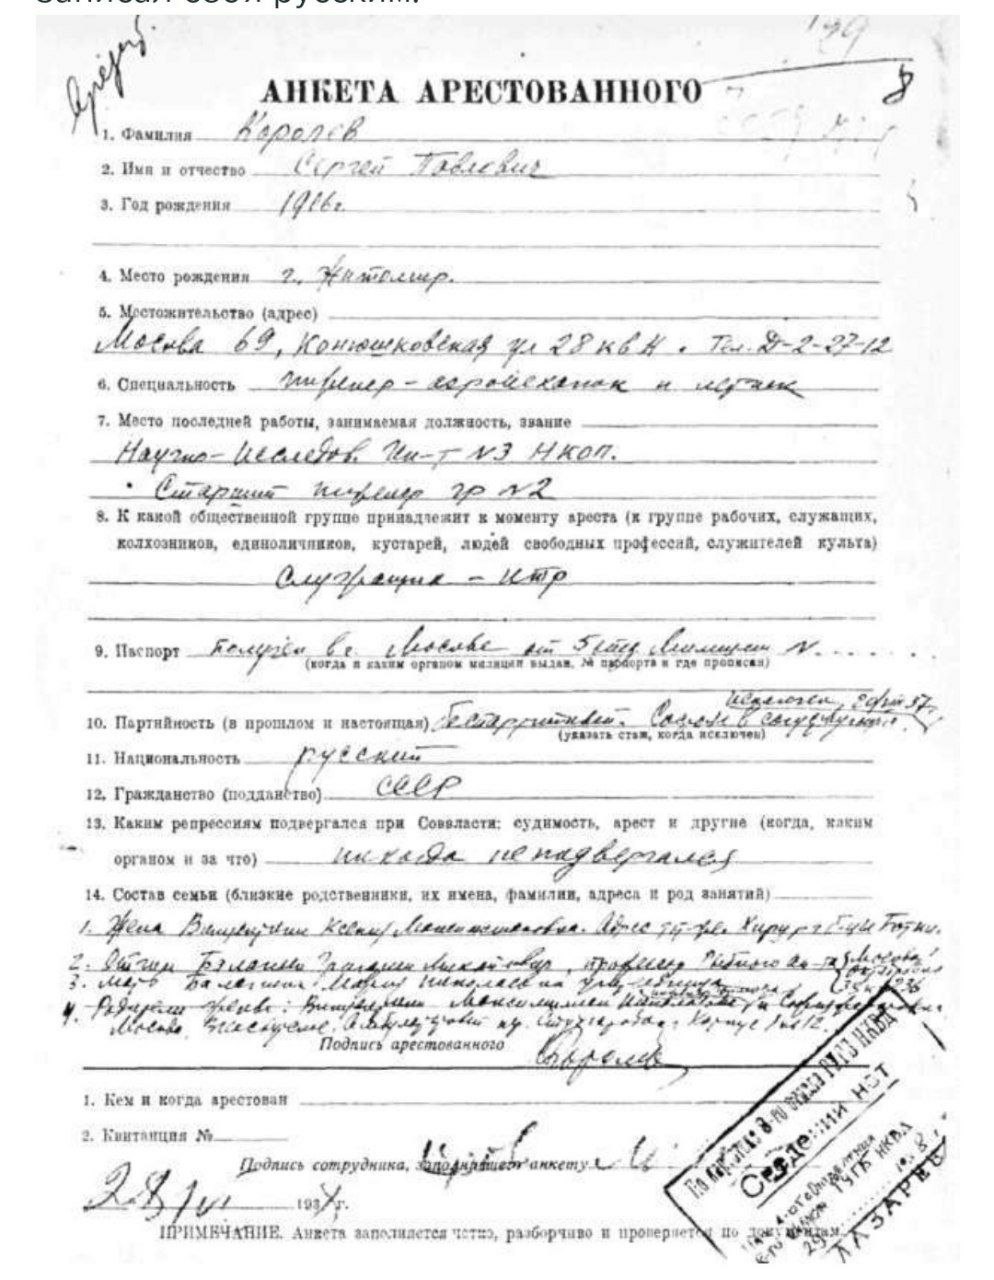 записал себя русским.
АНКЕТА АРЕСТОВАННОГО
1. Фамилия Королев
2. Имя и отчество Сергей Павлович
3. Год рождения 1906г.
4. Место рождения г. Житомир.
5. Местожительство (адрес)
Москва 69, Конюшковская ул 28 кв 11. Тел. Д-2-27-12
6. Специальность инженер - аэромеханик и летчик
7. Место последней работы, занимаемая должность, звание
Научно-Исследов. Ин-т №3 НКОП.
Старший инженер гр №2
8. К какой общественной группе принадлежит к моменту ареста (к группе рабочих, служащих,
колхозников, единоличников, кустарей, людей свободных профессий, служителей культа)
Служащие - ИТР
9. Паспорт получен в г. Москве от 5 отд Милиции №
(когда и каким органом милиции выдан, № паспорта и где прописан)
10. Партийность (в прошлом и настоящая) беспартийный. Состоял в сочувствующих.
(указать стаж, когда исключен)
11. Национальность русский
12. Гражданство (подданство) СССР
13. Каким репрессиям подвергался при Соввласти: судимость, арест и другие (когда, каким
органом и за что) никогда не подвергался
14. Состав семьи (близкие родственники, их имена, фамилии, адреса и род занятий)
1. Жена Винцентини Ксения Максимилиановна. Адрес тот же. Хирург Б-цы Боткин.
2. Отчим Баланин Григорий Михайлович, профессор
3. Мать Баланина Мария Николаевна
4. Родители жены: Винцентини Максимилиан
Москва,
Подпись арестованного Королев
1. Кем и когда арестован
2. Квитанция №
Подпись сотрудника, заполнявшего анкету
28 193 г.
ПРИМЕЧАНИЕ. Анкета заполняется четко, разборчиво и проверяется по документам.
СВЕДЕНИЙ НЕТ
ГУГБ НКВД
ЛАЗАРЕВ